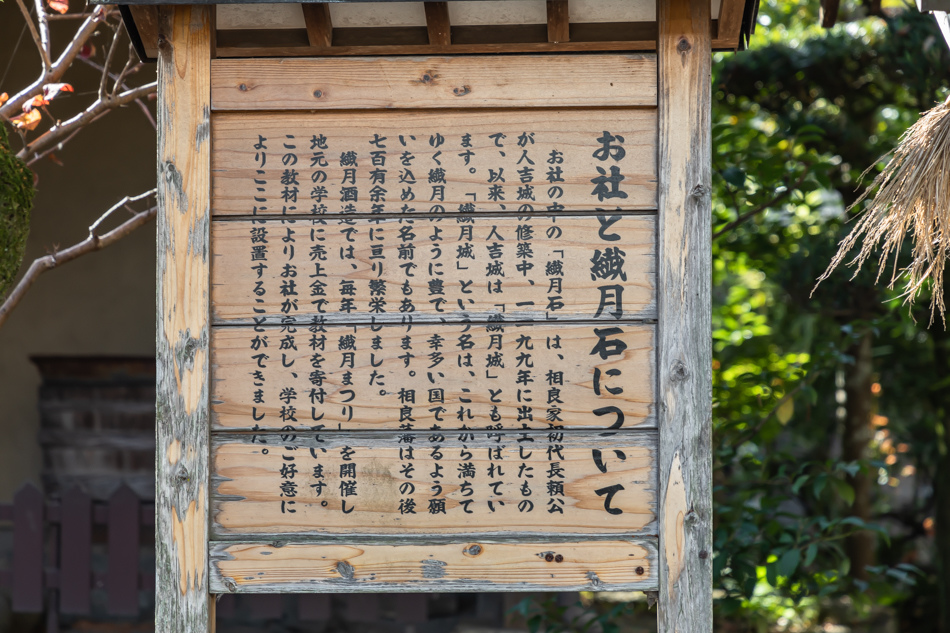 お社と繊月石について
お社の中の「繊月石」は、相良家初代長頼公
が人吉城の修築中、一一九九年に出土したもの
で、以来、人吉城は「繊月城」とも呼ばれてい
ます。「繊月城」という名は、これから満ちて
ゆく繊月のように豊で、幸多い国であるよう願
いを込めた名前でもあります。相良藩はその後
七百有余年に亘り繁栄しました。
繊月酒造では、毎年「繊月まつり」を開催し
地元の学校に売上金で教材を寄付しています。
この教材によりお社が完成し、学校のご好意に
よりここに設置することができました。